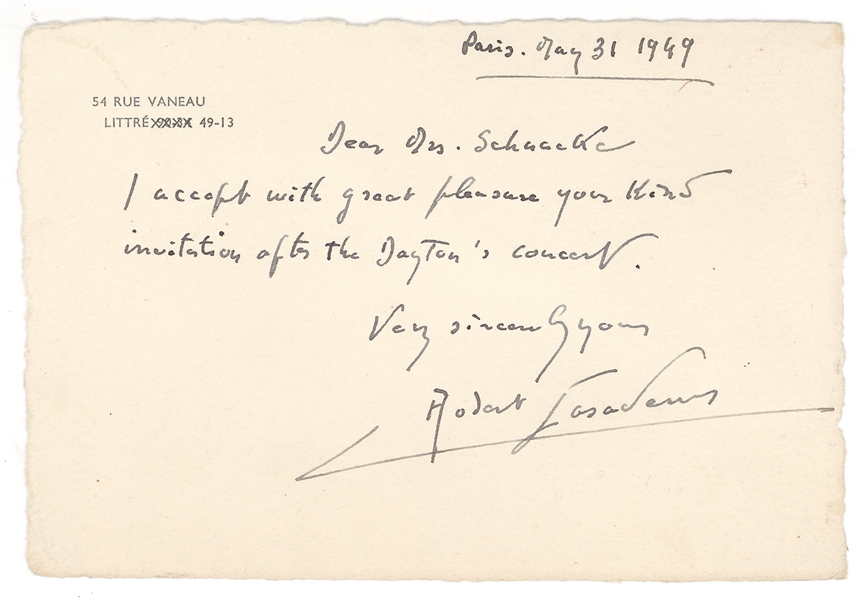 Paris. May 31 1949
54 RUE VANEAU
LITTRÉ 49-13
Dear Mrs. Schnacke
I accept with great pleasure your kind
invitation after the Dayton's concert.
Very sincerely yours
Robert Casadesus